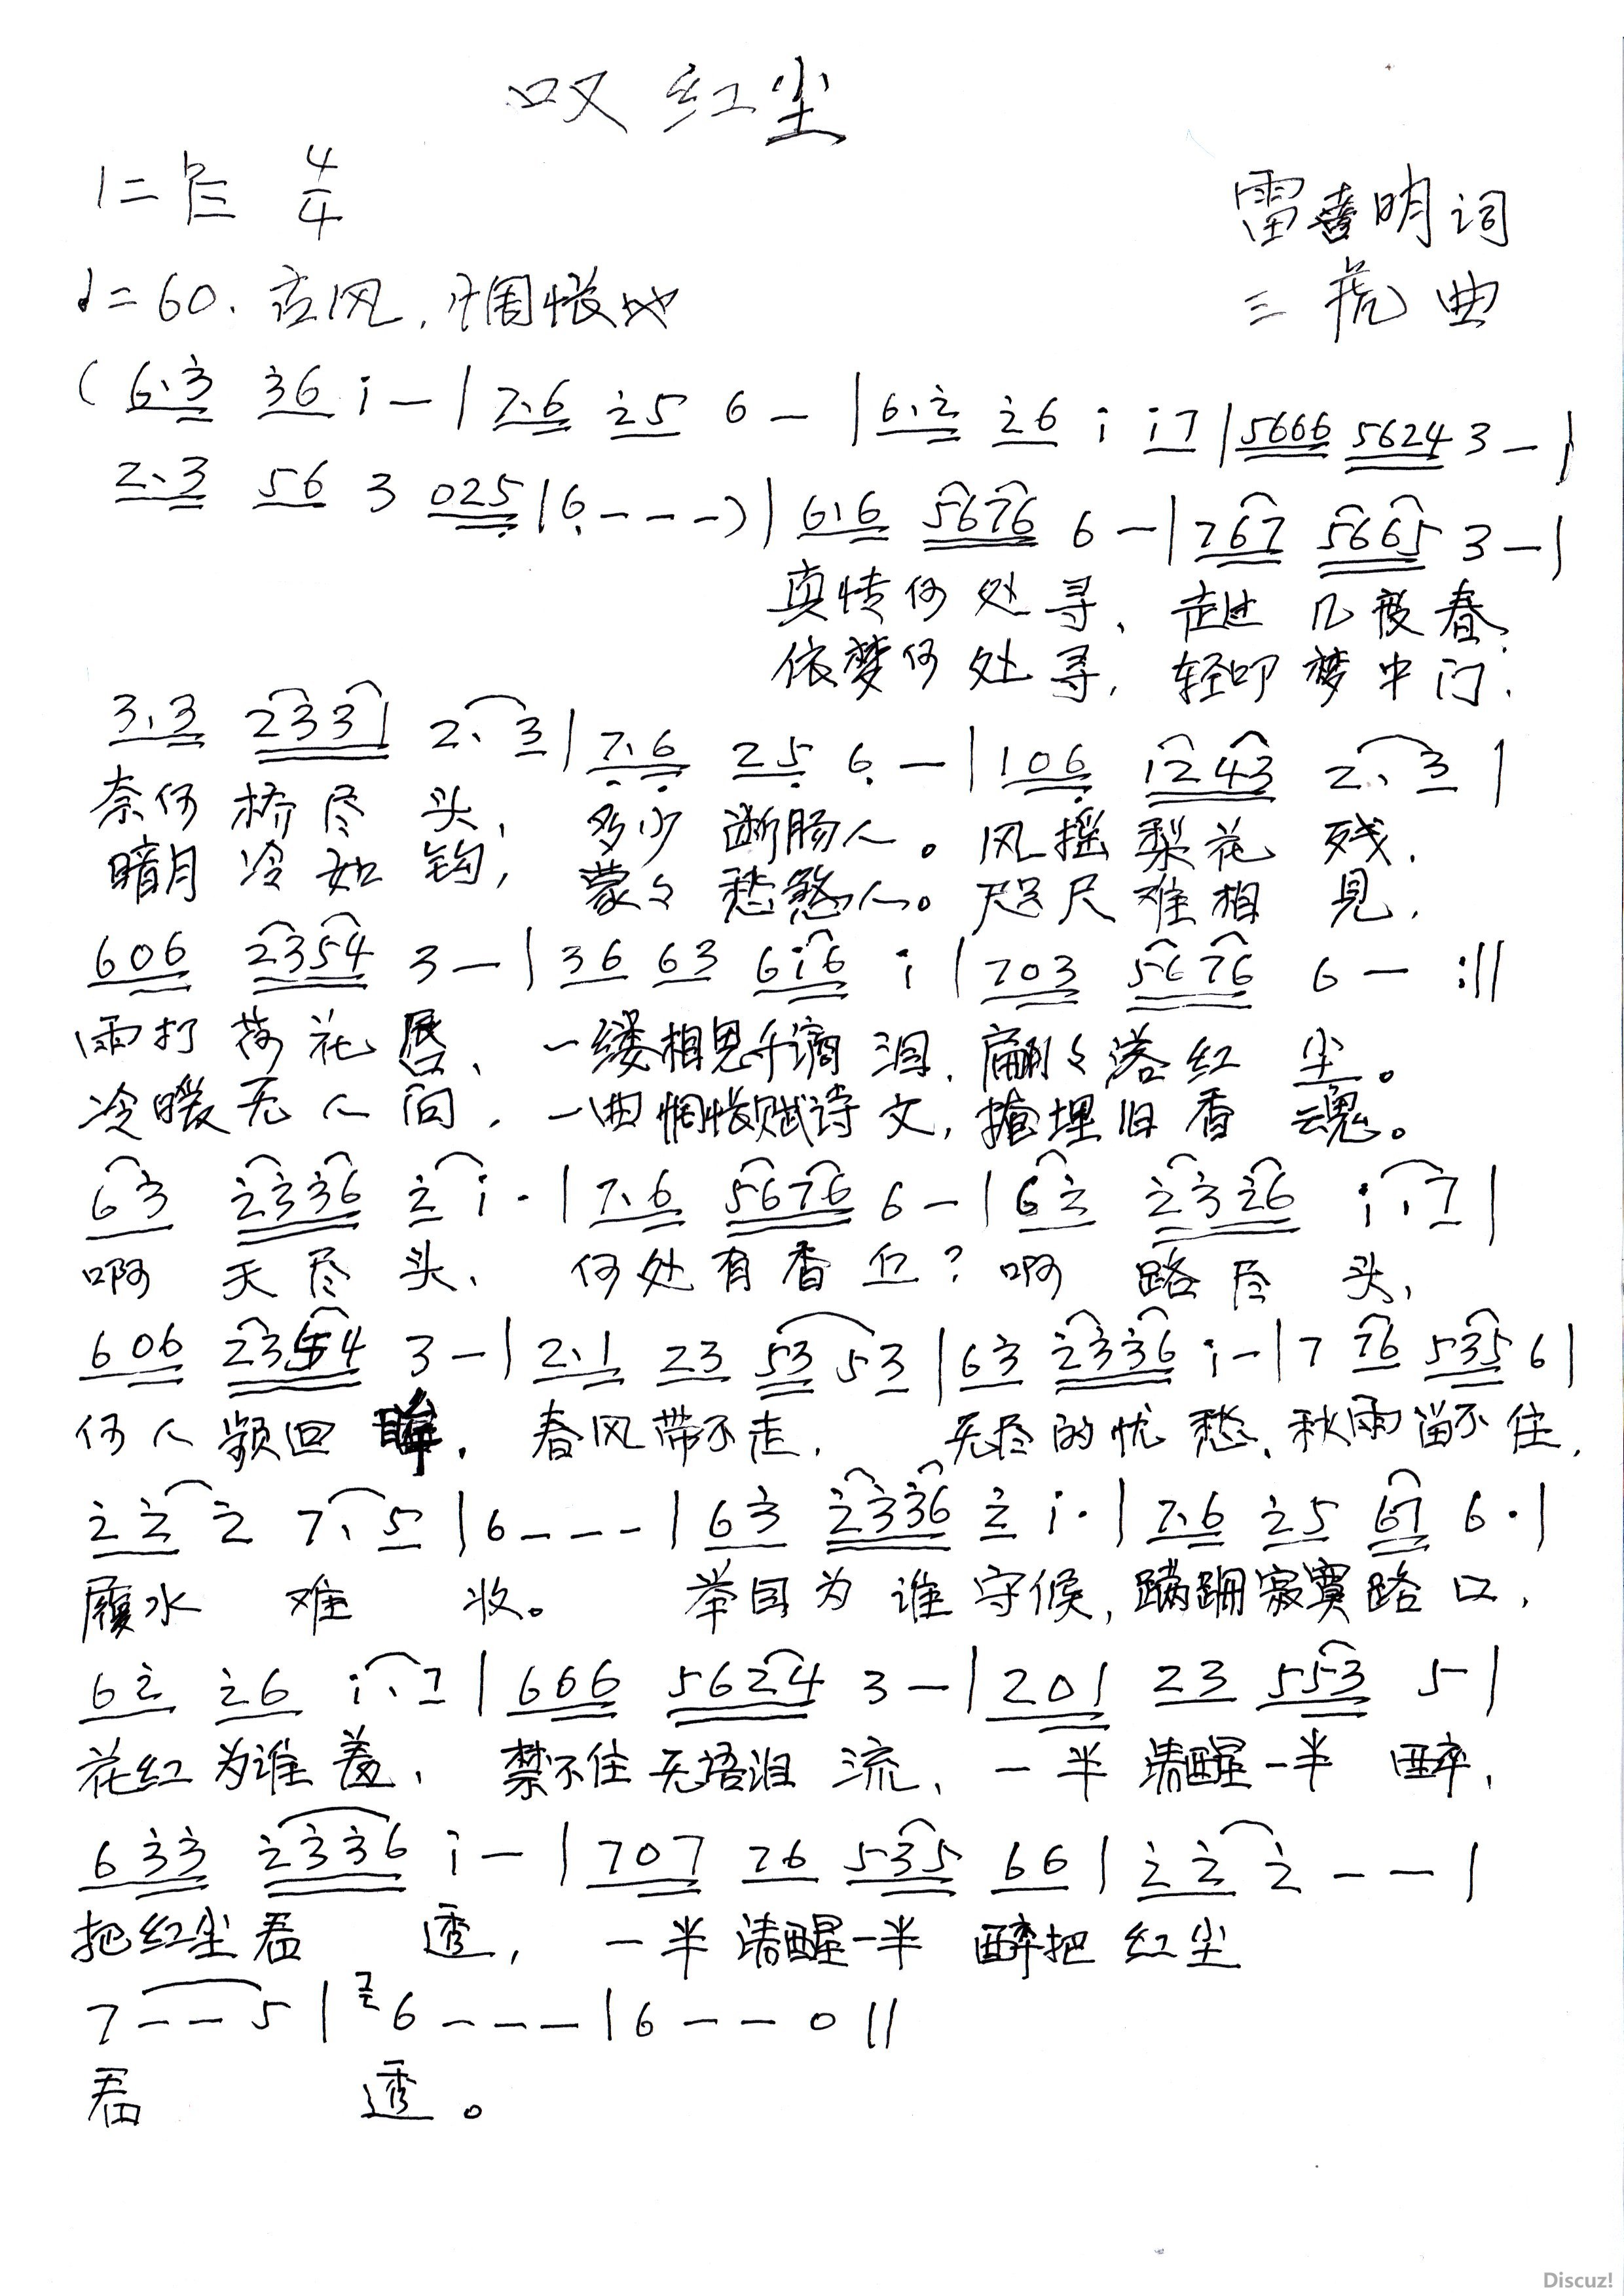 叹红尘
1=♭E 4/4
雷喜明词
♩=60. 古风,惆怅地
三 曲
(6·3̇ 3̇6 i̇ — | 7·6 2̇5 6 — | 6·2̇ 2̇6 i̇ i̇7 | 5666 5624 3 — |
2·3 56 3 025̣ | 6̣ - - - ) | 6i6 5676 6 — | 767 5665 3 — |
真情何处寻、走过几度春,
依梦何处寻,轻叩梦中门.
3·3 2331 2·3 | 7̣·6̣ 25̣ 6̣ — | 106̣ 1243 2·3 |
奈何桥尽头,多少断肠人。风摇梨花残.
暗月冷如钩,蒙々愁煞人。咫尺难相见.
606 2354 3 — | 36 63 6i̇6 i̇ | 703 5676 6 — :||
雨打荷花唇、一缕相思千滴泪、扁翩々落红尘。
冷暖无人问.一曲惆怅赋诗文,掩埋旧香魂。
63̇ 2̇3̇3̇6 2̇ i̇· | 7·6 5676 6 — | 62̇ 2̇3̇2̇6 i̇·7 |
啊 天尽头、何处有香丘?啊 路尽头,
606 2354 3 — | 2·1 23 53 53 | 63̇ 2̇3̇3̇6 i̇ — | 7 76 535 6 |
何人频回眸.春风带不走.无尽的忧愁、秋雨留不住,
2̇2̇ 2̇ 7·5 | 6 - - - | 63̇ 2̇3̇3̇6 2̇ i̇· | 7·6 2̇5 67 6· |
履水难收。举目为谁守候,蹒跚寂寞路口,
62̇ 2̇6 i̇·7 | 666 5624 3 — | 201 23 553 5 - |
花红为谁羞、禁不住无语泪流、一半清醒一半醉,
63̇3̇ 2̇3̇3̇6 i̇ — | 707 76 535 66 | 2̇2̇ 2̇ - - |
把红尘看透,一半清醒一半醉把红尘
7 - - 5 | 7 6 - - - | 6 - - 0 ||
看透。
Discuz!